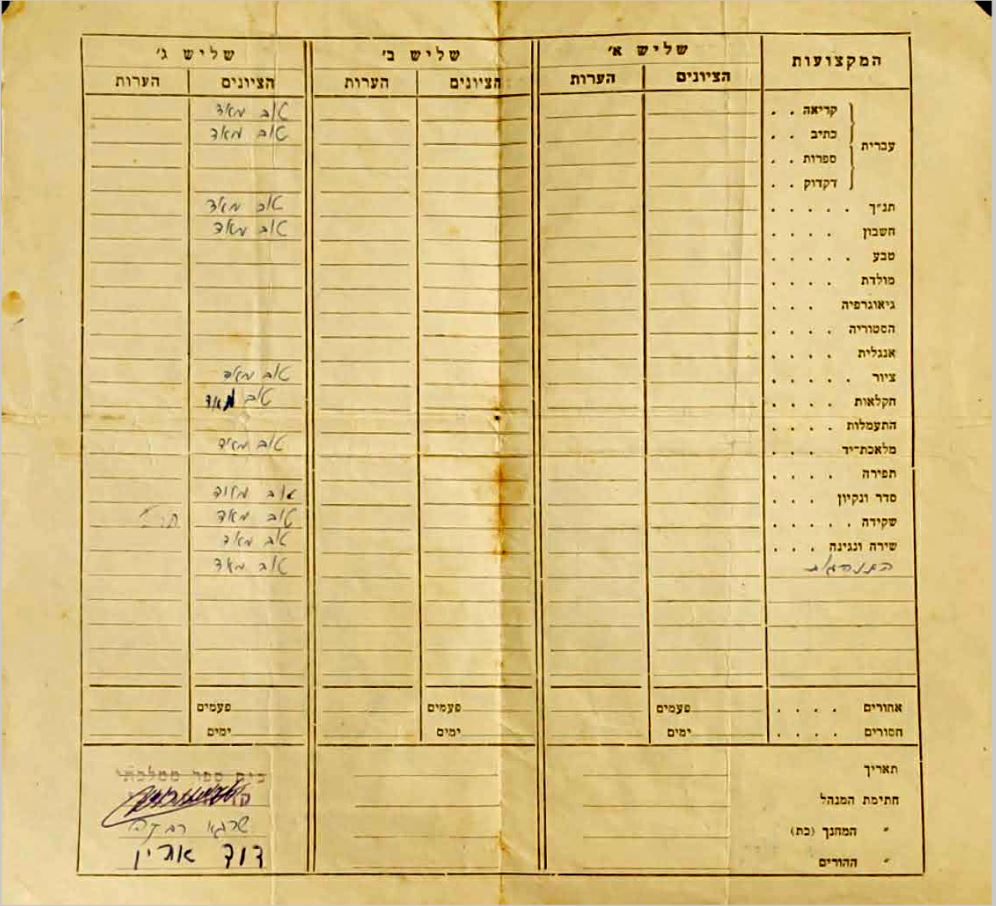 המקצועות שליש א׳ שליש ב׳ שליש ג׳
הציונים הערות הציונים הערות הציונים הערות
עברית
קריאה . . טוב מאד
כתיב . . טוב מאד
ספרות . .
דקדוק . .
תנ״ך . . . . . טוב מאד
חשבון . . . . טוב מאד
טבע . . . . .
מולדת . . . .
גיאוגרפיה . . .
הסטוריה . . . .
אנגלית . . . .
ציור . . . . . טוב מאד
חקלאות . . . . טוב מאד
התעמלות . . . .
מלאכת־יד . . . . טוב מאד
תפירה . . . .
סדר ונקיון . . . טוב מאוד
שקידה . . . . . טוב מאד
שירה ונגינה . . . טוב מאד
התנהגות טוב מאד
אחורים . . . . פעמים פעמים פעמים
חסורים . . . . ימים ימים ימים
תאריך בית ספר ממלכתי
חתימת המנהל
״ המחנך (כת)
״ ההורים דוד